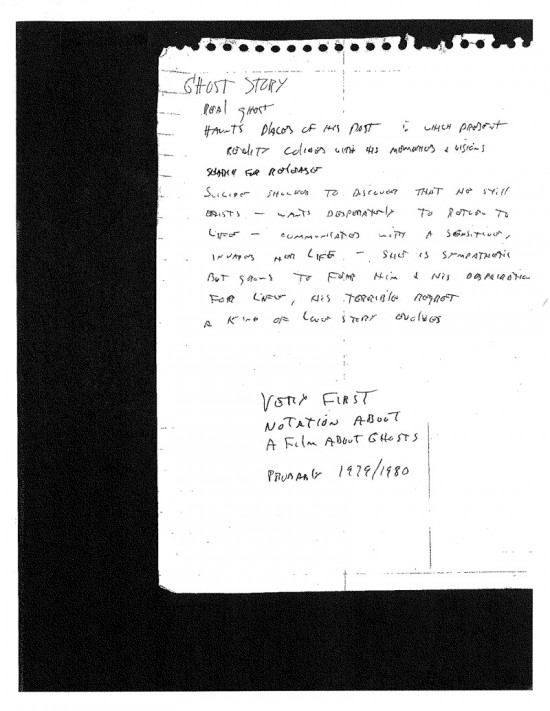 GHOST STORY
REAL GHOST
HAUNTS PLACES OF HIS PAST IN WHICH PRESENT
REALITY COLLIDES WITH HIS MEMORIES & VISIONS
SEARCH FOR RELEASE
SUICIDE SHOCKED TO DISCOVER THAT HE STILL
EXISTS – WANTS DESPERATELY TO RETURN TO
LIFE – COMMUNICATES WITH A SENSITIVE,
INVADES HER LIFE – SHE IS SYMPATHETIC
BUT GROWS TO FEAR HIM & HIS DESPERATION
FOR LIFE, HIS TERRIBLE REGRET
A KIND OF LOVE STORY EVOLVES
VERY FIRST
NOTATION ABOUT
A FILM ABOUT GHOSTS
PROBABLY 1979/1980